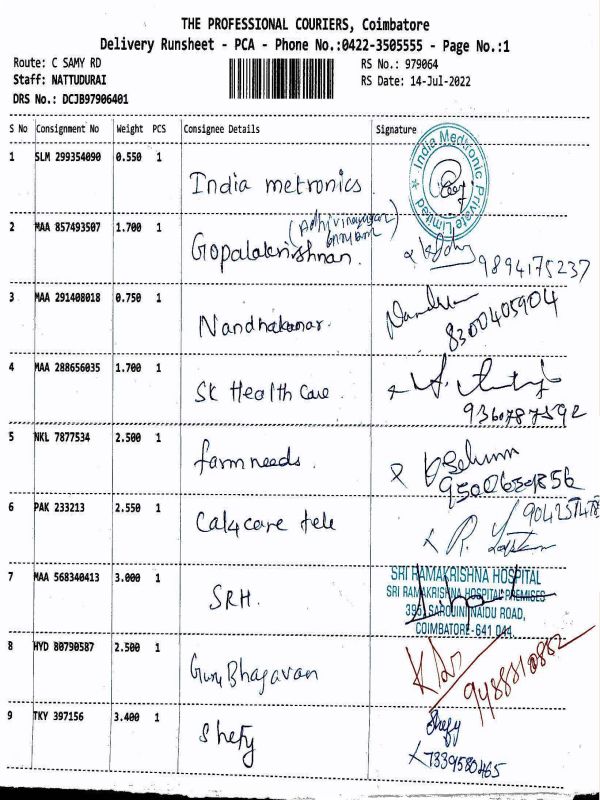 THE PROFESSIONAL COURIERS, Coimbatore
Delivery Runsheet - PCA - Phone No.:0422-3505555 - Page No.:1
Route: C SAMY RD
RS No.: 979064
Staff: NATTUDURAI
RS Date: 14-Jul-2022
DRS No.: DCJB97906401
S No Consignment No Weight PCS Consignee Details Signature
1 SLM 299354090 0.550 1 India metronics
India Medtronic Private Limited
2 MAA 857493507 1.700 1 Gopalakrishnan
9894175237
3 MAA 291408018 0.750 1 Nandhakumar
8300405904
4 MAA 288656035 1.700 1 SK Health Care
9360787592
5 NKL 7877534 2.500 1 farm needs
6 PAK 233213 2.550 1 Cal4care tele
7 MAA 568340413 3.000 1 SRH.
SRI RAMAKRISHNA HOSPITAL
SRI RAMAKRISHNA HOSPITAL PREMISES
395, SAROJINI NAIDU ROAD,
COIMBATORE-641 044.
8 HYD 80790587 2.500 1 Guru Bhagavan
9 TKY 397156 3.400 1 Shefy
Shefy